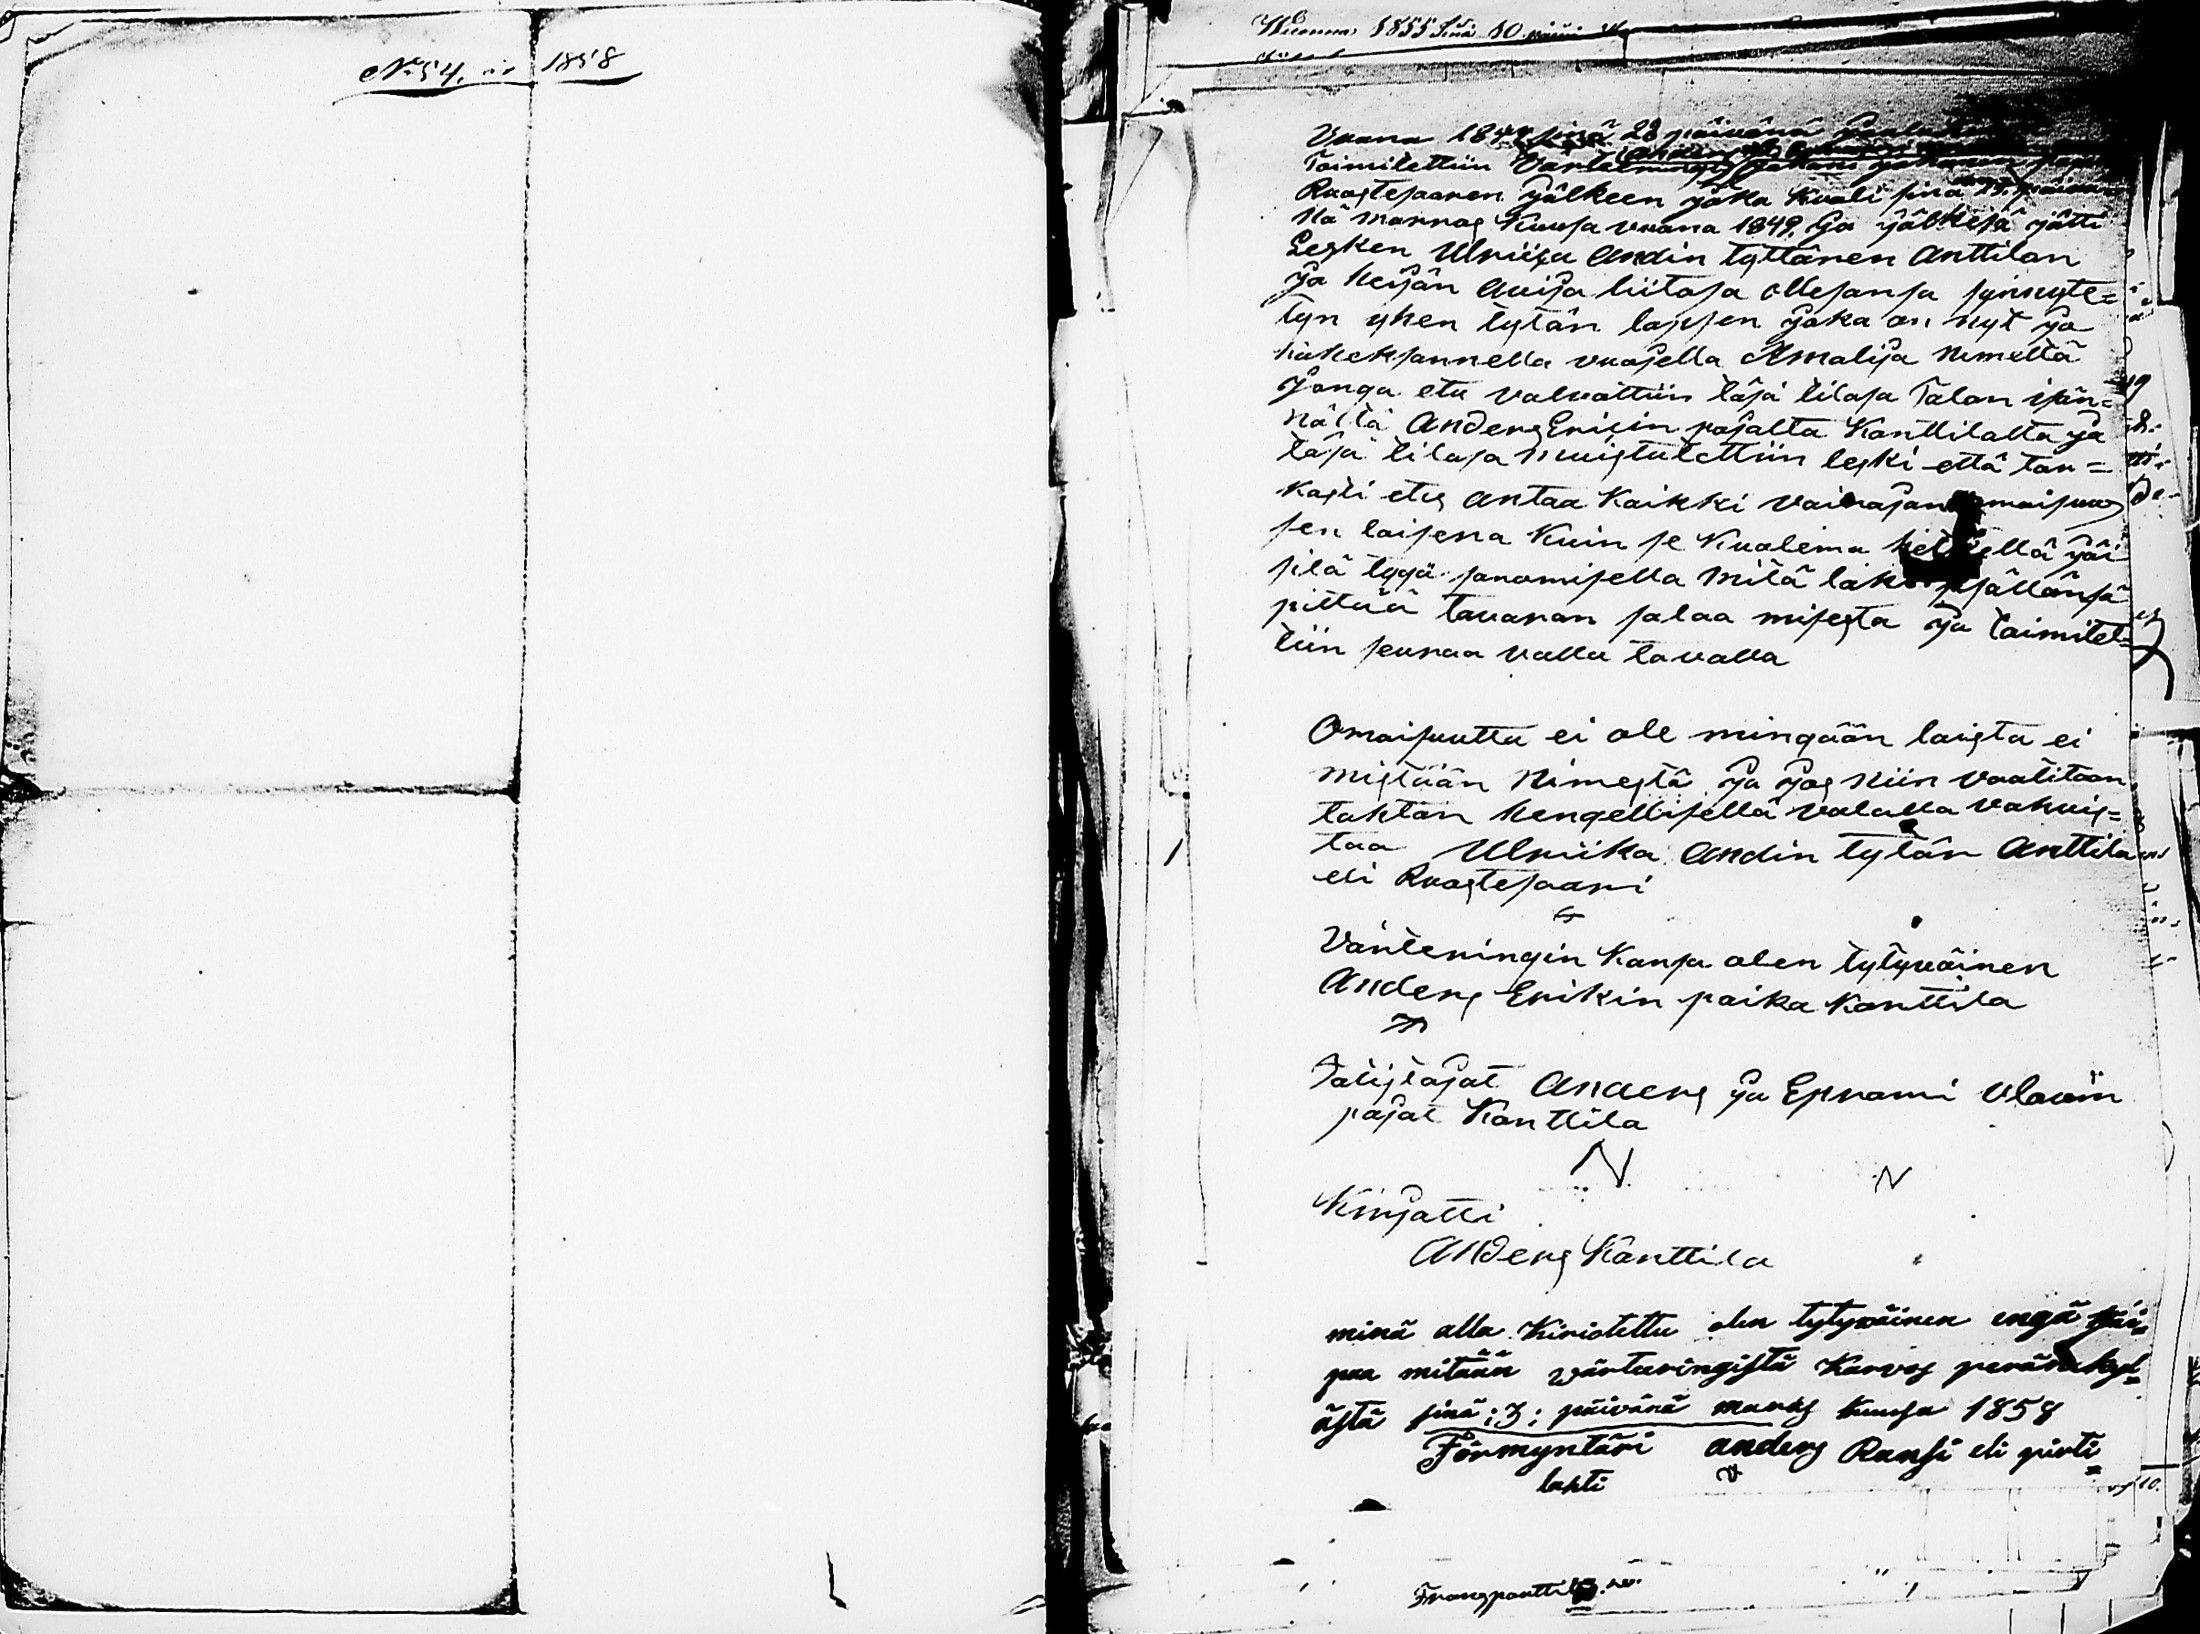 No 54. 1858
Wuonna 1855 Sinä 10 päivä
Vuona 1849 sinä 28 päivänä
Toimitettiin Värteeringi
Ruostesaaren jälkeen joka Kuoli sinä 15. päivä
nä marras Kuusa vuona 1849. Ja jälkesä jätti
Lesken Ulriiga Andin tyttären Anttilan
ja heijän avisa liitosa ollesansa synnyte=
tyn yhen tytän lapsen joka on nyt ja
kaheksannella vuosella Amalija Nimeltä
Jonga etu valvottiin täsä tilasa Talon isän=
nältä Anders Erikin pojalta Konttilalta ja
täsä tilasa muistutettiin leski että tar=
kasti etes antaa Kaikki vainajan omaisuus
sen laisena Kuin se Kuolema hetkellä jäi
sitä työä sanomisella Mitä laki sisällänsä
pittää tavaran salaa misesta ja toimitet=
tiin seuraa valla tavalla
Omaisuutta ei ole mingään laista ei
mistään Nimestä ja jos Niin vaatitaan
tahtän hengellisellä valalla vahvis=
taa Ulriika Andin tytär Anttila
eli Ruostesaari
Värteringin Kansa olen tytyväinen
Anders Erikin poika Konttila
Tatistajat Anders ja Eprami Olavin
pojat Konttila
Kirjatti
Anders Konttila
minä alla Kiriotettu olen tytyväinen engä
paa mitään wärteeringistä Karvos peränkyl=
ästä sinä :3: päivänä maras kuusa 1858
Förmyntäri anders Ransi eli pirti=
lahti